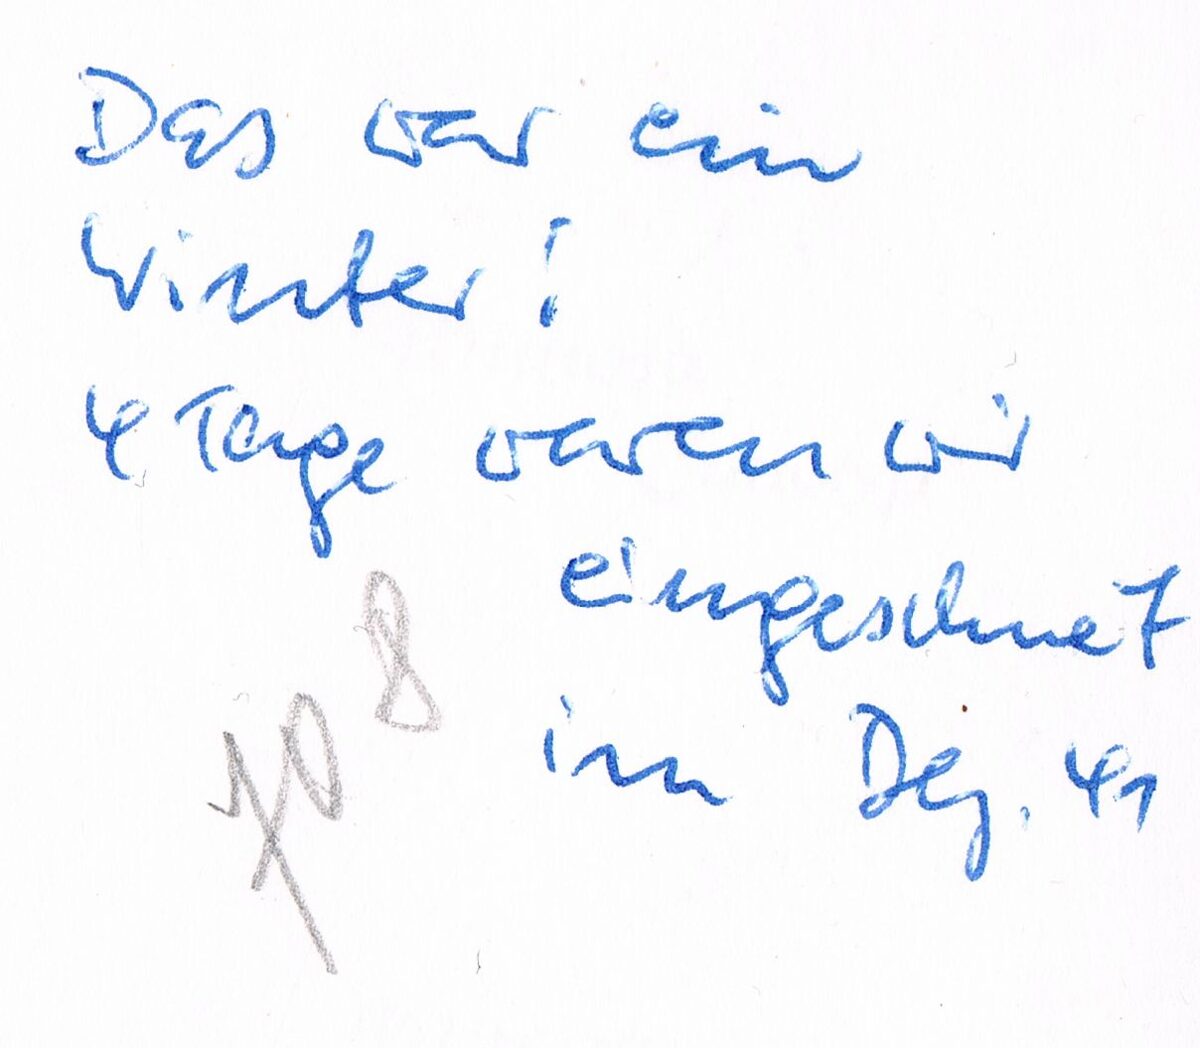 Das war ein
Winter!
4 Tage waren wir
eingeschneit
im Dez. 41